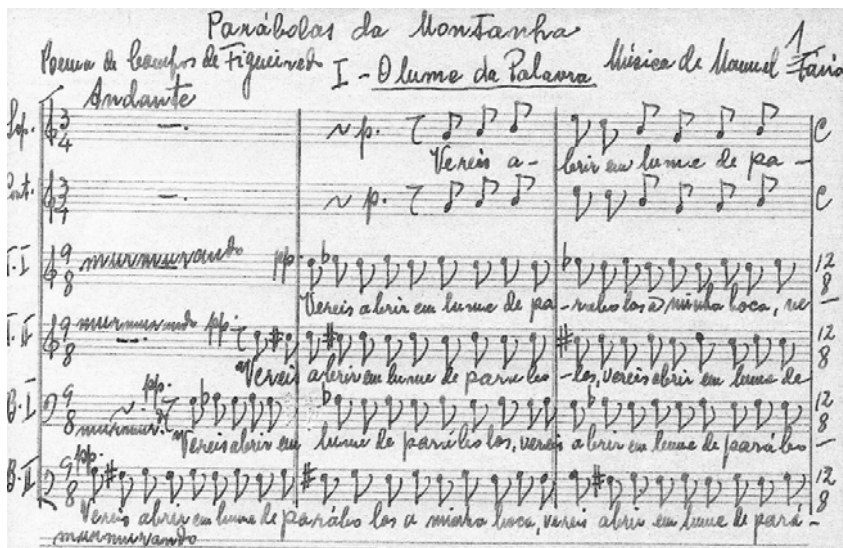 Parábolas da Montanha
1
Poema de Campos de Figueiredo
I - O lume da Palavra
Música de Manuel Faria
Andante
Sop. 3 4 p. C
Vereis a- brir em lume de pa -
Cont. 3 4 p. C
T. I 9 8 murmurando pp. 12 8
Vereis abrir em lume de pa - rabolas a minha boca, ve -
T. II 9 8 murmurando pp. 12 8
Vereis abrir em lume de parabo - las, vereis abrir em lume de
B. I 9 8 murmur. pp. 12 8
Vereis abrir em lume de parábolas, vereis abrir em lume de parábo -
B. II 9 8 pp. 12 8
Vereis abrir em lume de parábolas a minha boca, vereis abrir em lume de pará -
murmurando